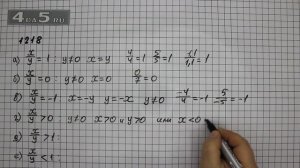 4@5.RU
1218
а) x/y = 1 : y≠0 x=y 4/4=1 5/5=1 1,1/1,1=1
б) x/y = 0 : y≠0 x=0 0/7=0
в) x/y = -1 : x=-y y=-x y≠0 -4/4=-1 5/-5=-1
г) x/y > 0 : y≠0 x>0 и y>0 или x<0
д) x/y > 1 :
е) x/y < 1 :